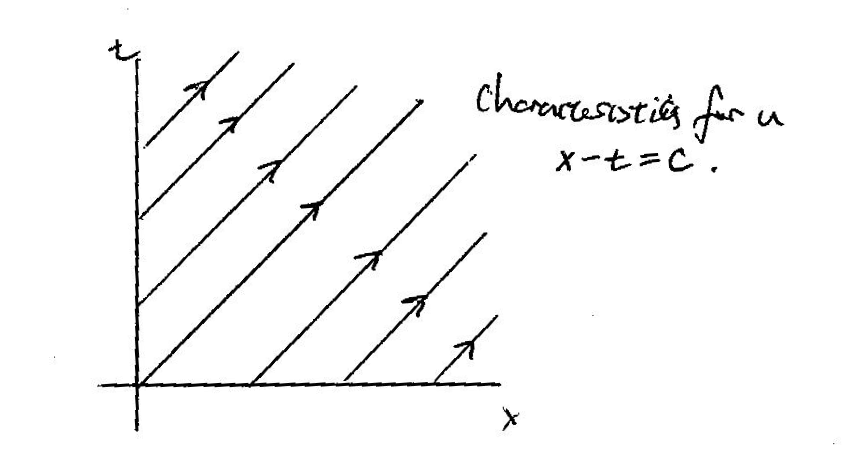 t
Characteristics for u
x-t=c.
x